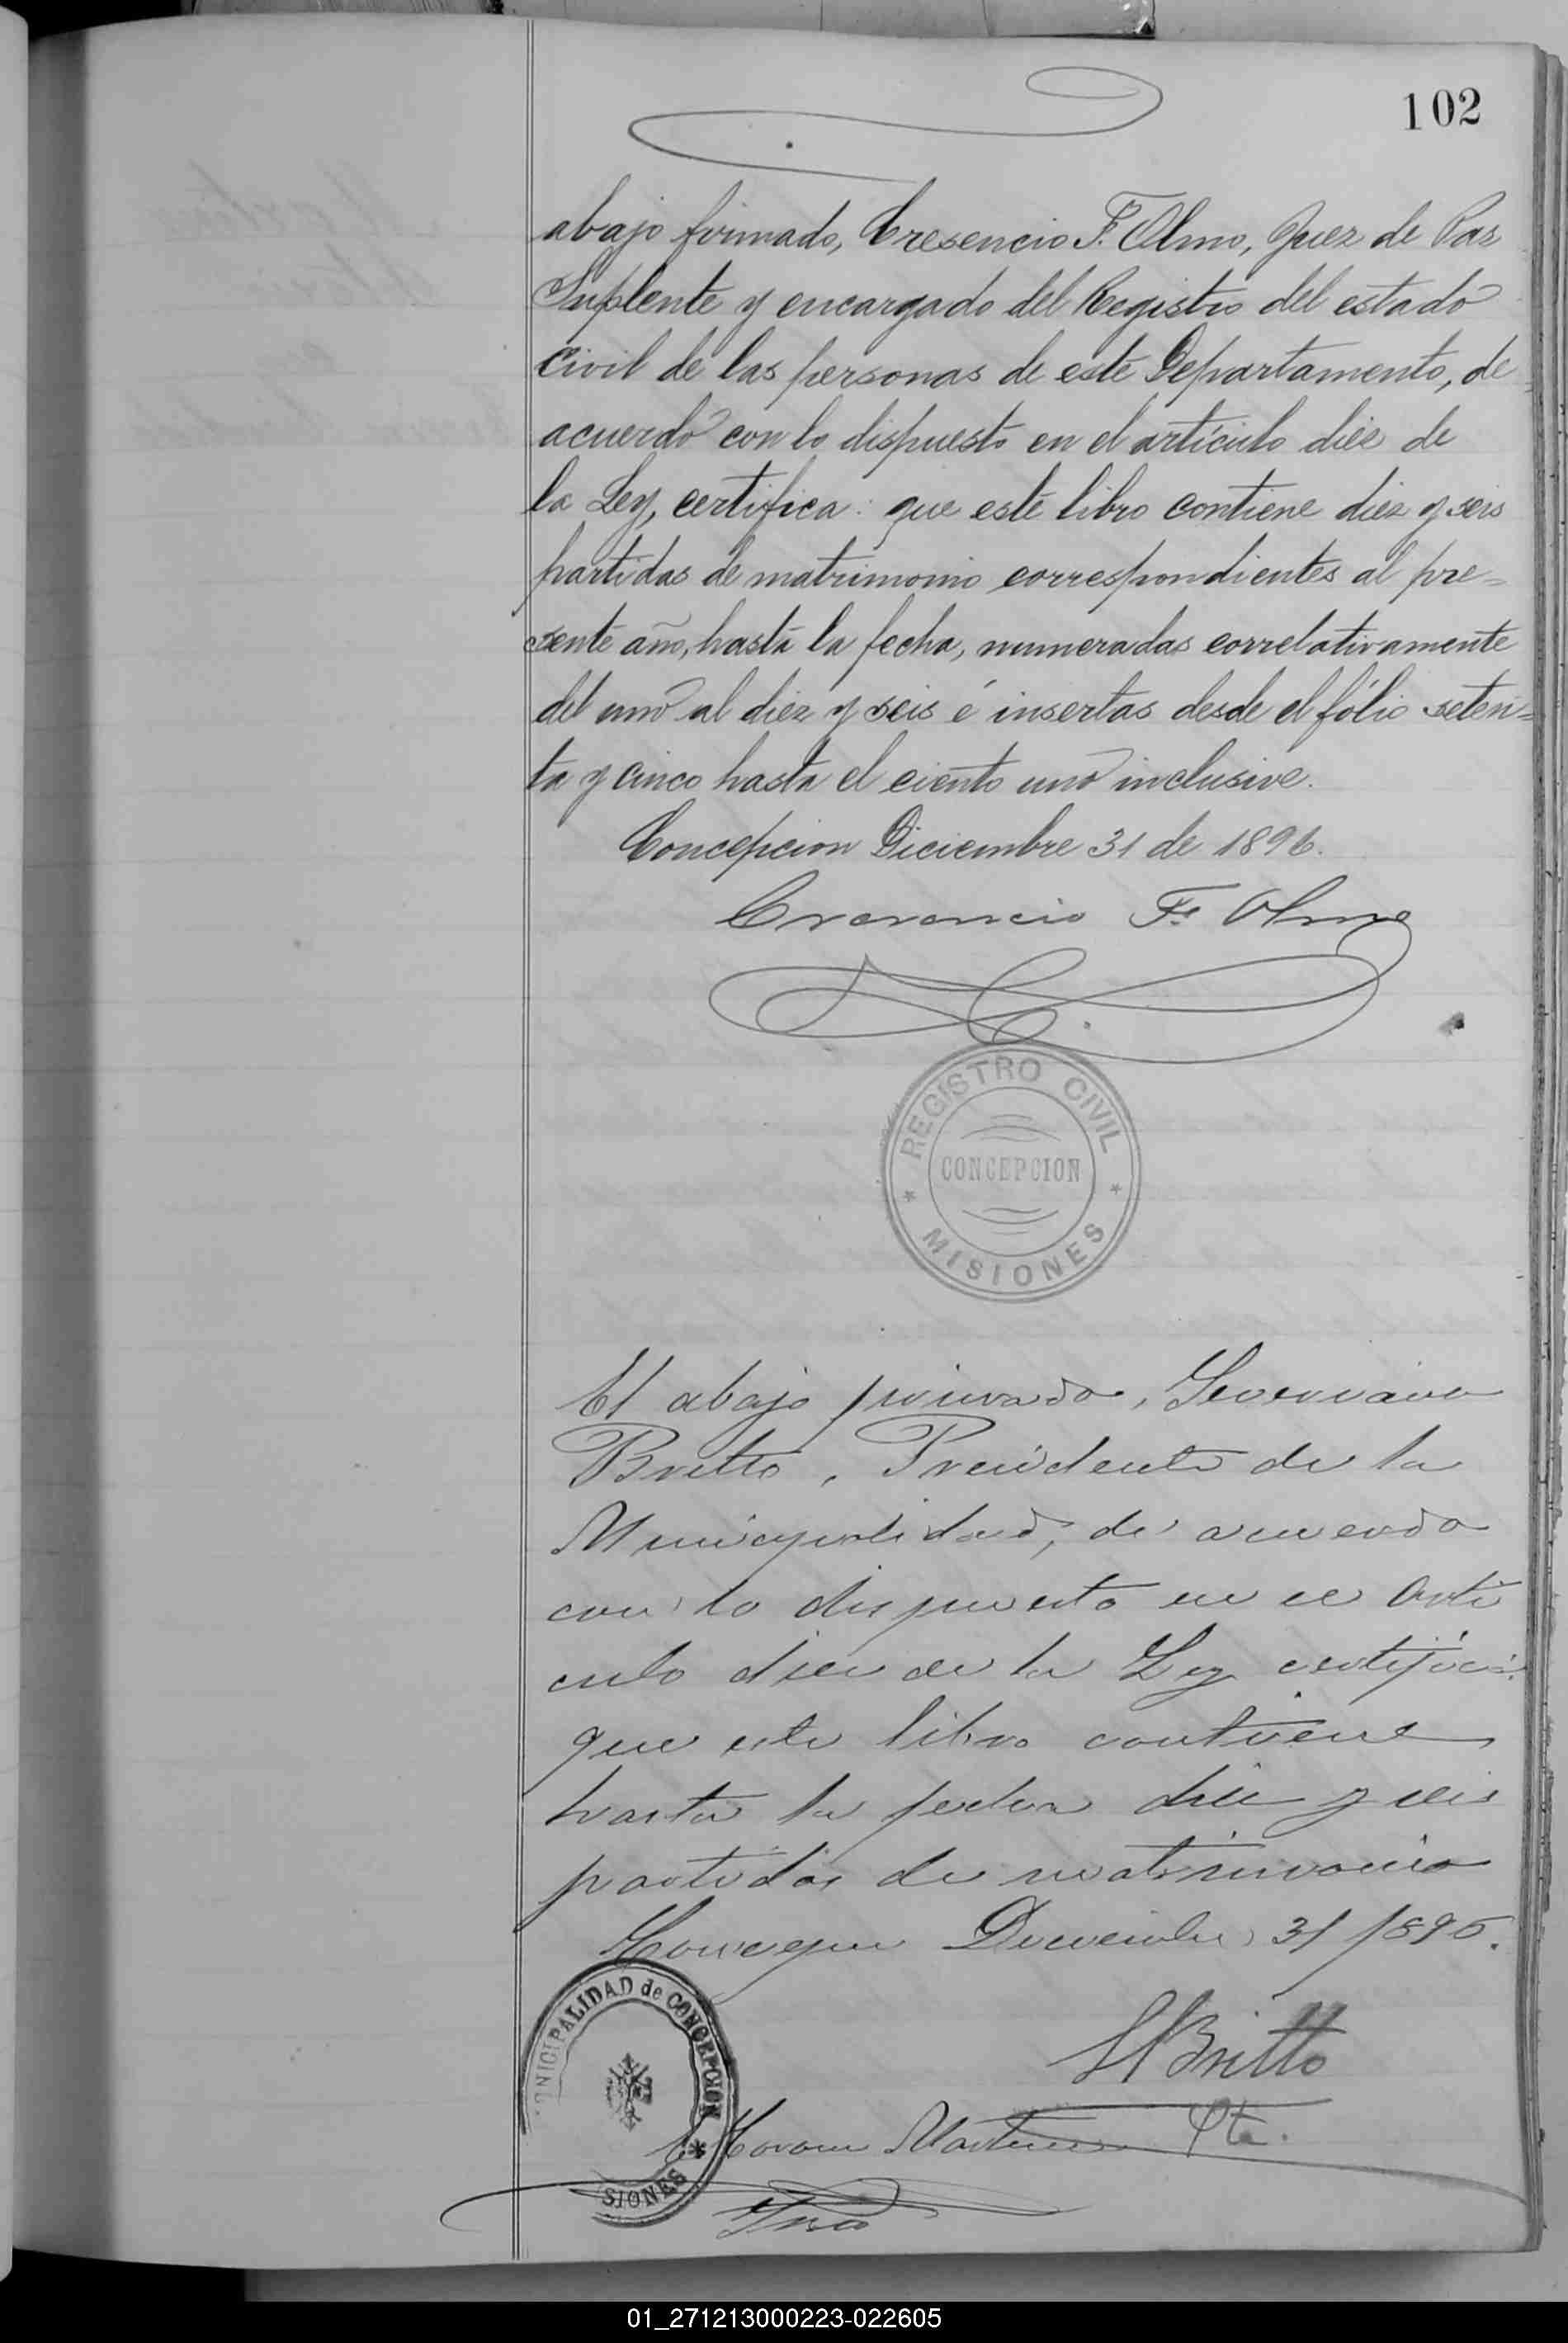 102
abajo firmado, Cresencio F. Olmo, Juez de Paz
Suplente y encargado del Registro del estado
civil de las personas de este Departamento, de
acuerdo con lo dispuesto en el artículo diez de
la Ley, certifica: que este libro contiene diez y seis
partidas de matrimonio correspondientes al pre=
sente año, hasta la fecha, numeradas correlativamente
del uno al diez y seis é insertas desde el fólio seten=
ta y cinco hasta el ciento uno inclusive.
Concepcion Diciembre 31 de 1896.
Cresencio F. Olmo
REGISTRO CIVIL
CONCEPCION
* MISIONES *
El abajo firmado, Severiano
Britto, Presidente de la
Municipalidad, de acuerdo
con lo dispuesto en el Arti
culo diez de la Ley certifica:
que este libro contiene
hasta la fecha diez y seis
partidas de matrimonio
Diciembre 31/1896.
UNICIPALIDAD de CONCEPCION *
SIONES
S Britto
Martinez Pte.
01_271213000223-022605